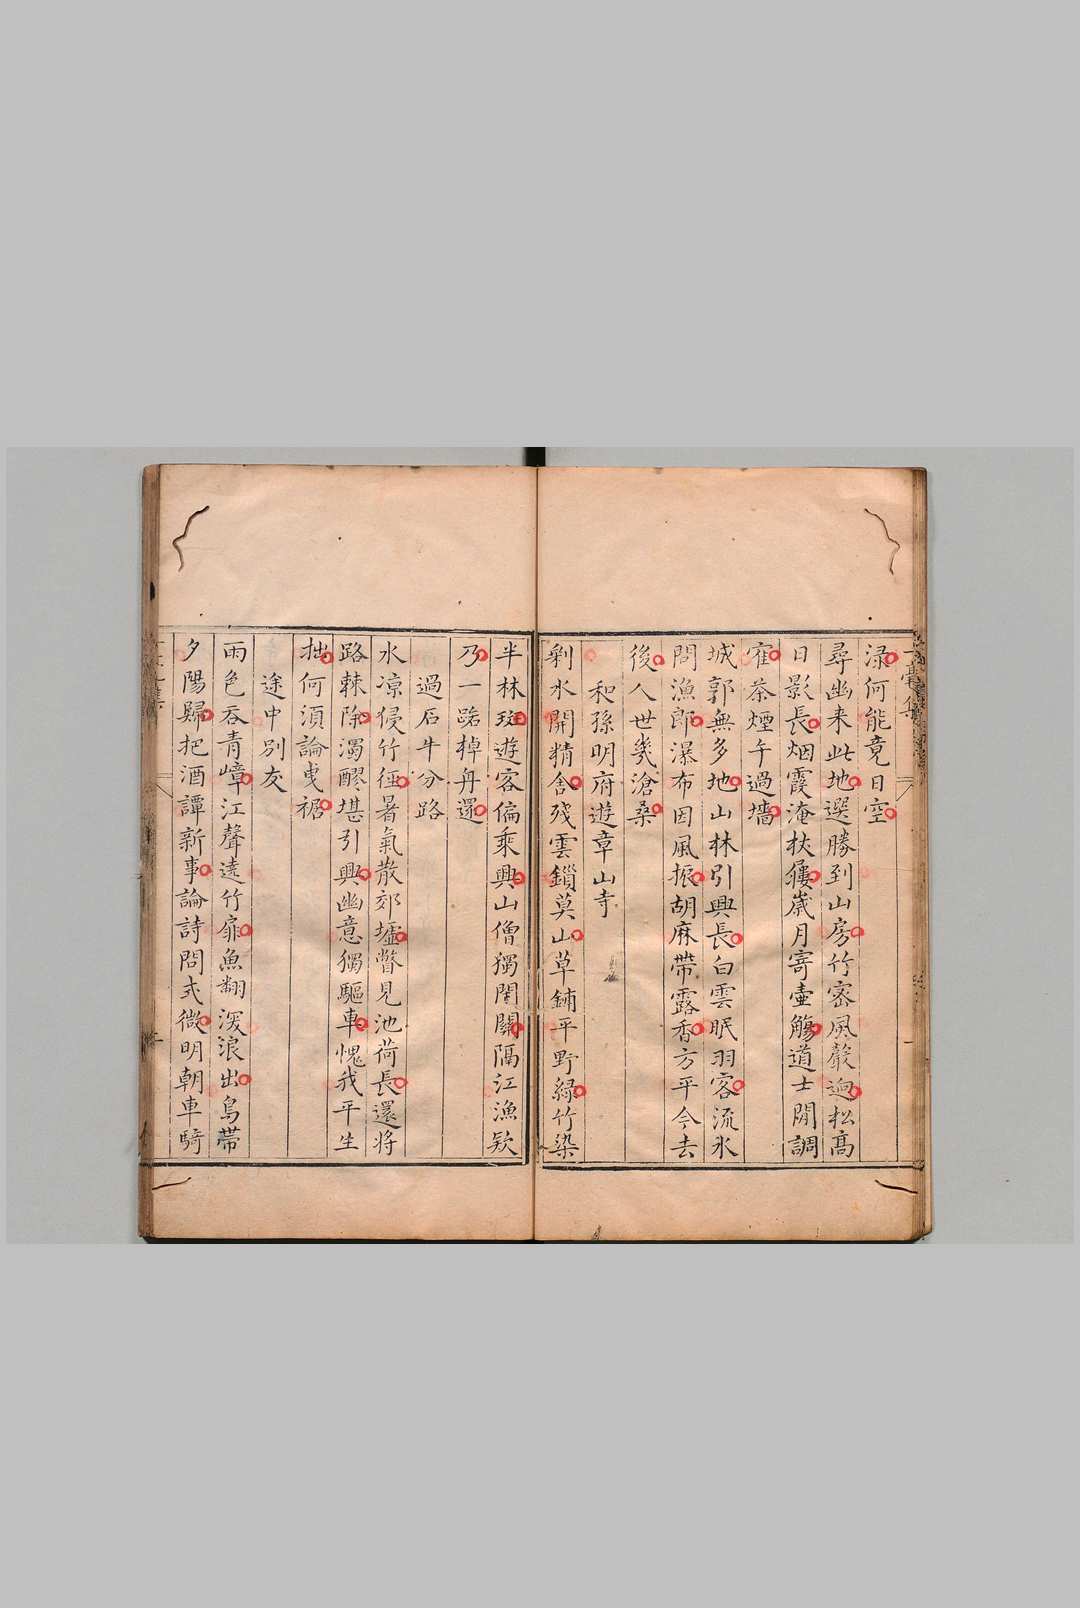 渌何能竟日空
尋幽来此地選勝到山房竹密風嚴迥松髙
日影長烟霞淹杖屨嵗月寄壷觴道士閒調
寉茶煙午過墻
城郭無多地山林引興長白雲眠羽客流氷
問漁郎瀑布因風振胡麻帶露香方平今去
後人世幾滄桑
和孫明府遊章山寺
剰水開精舍殘雲鎖莫山草鋪平野緑竹染
半林斑遊客偏乘興山僧獨閉關隔江漁欵
乃一踏棹舟還
過石牛分路
水凉侵竹徑暑氣散郊墟瞥見池荷長還将
路棘除濁醪堪引興幽意獨驅車愧我平生
拙何須論曵裾
途中別友
雨色吞青嶂江聲逺竹扉魚翻浚浪出鳥帶
夕陽歸把酒譚新事論詩問式微明朝車騎